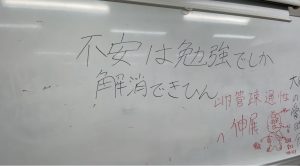 不安は勉強でしか
解消できひん
卵管疎通性
への伸展